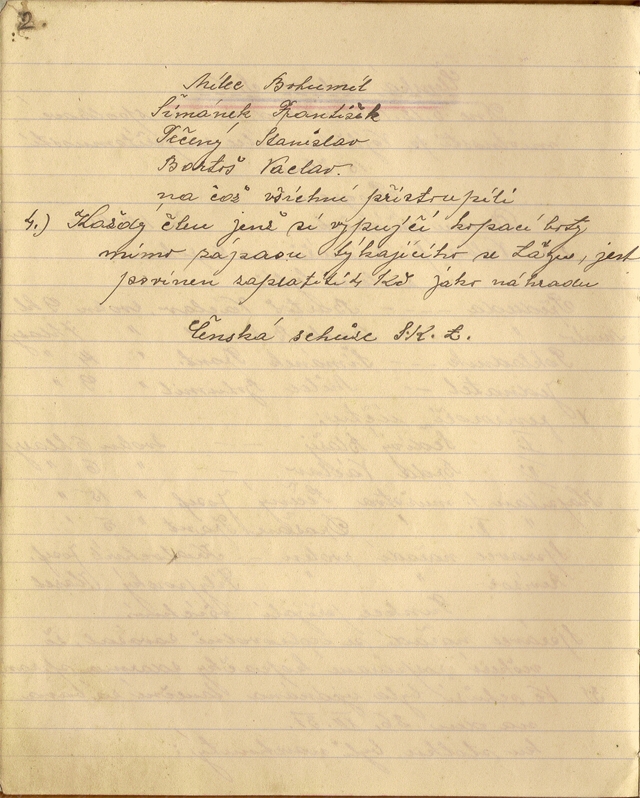 2
Mílec Bohumil
Šimánek František
Píčený Stanislav
Bartoš Vaclav.
na čož všichni přistoupili
4.) Každý člen jenž si vypujčí kopací boty
mimo zápasu týkajícího se Lážu, jest
povinen zaplatiti 4 Kč jako náhradu
Čenská schůze S.K.L.